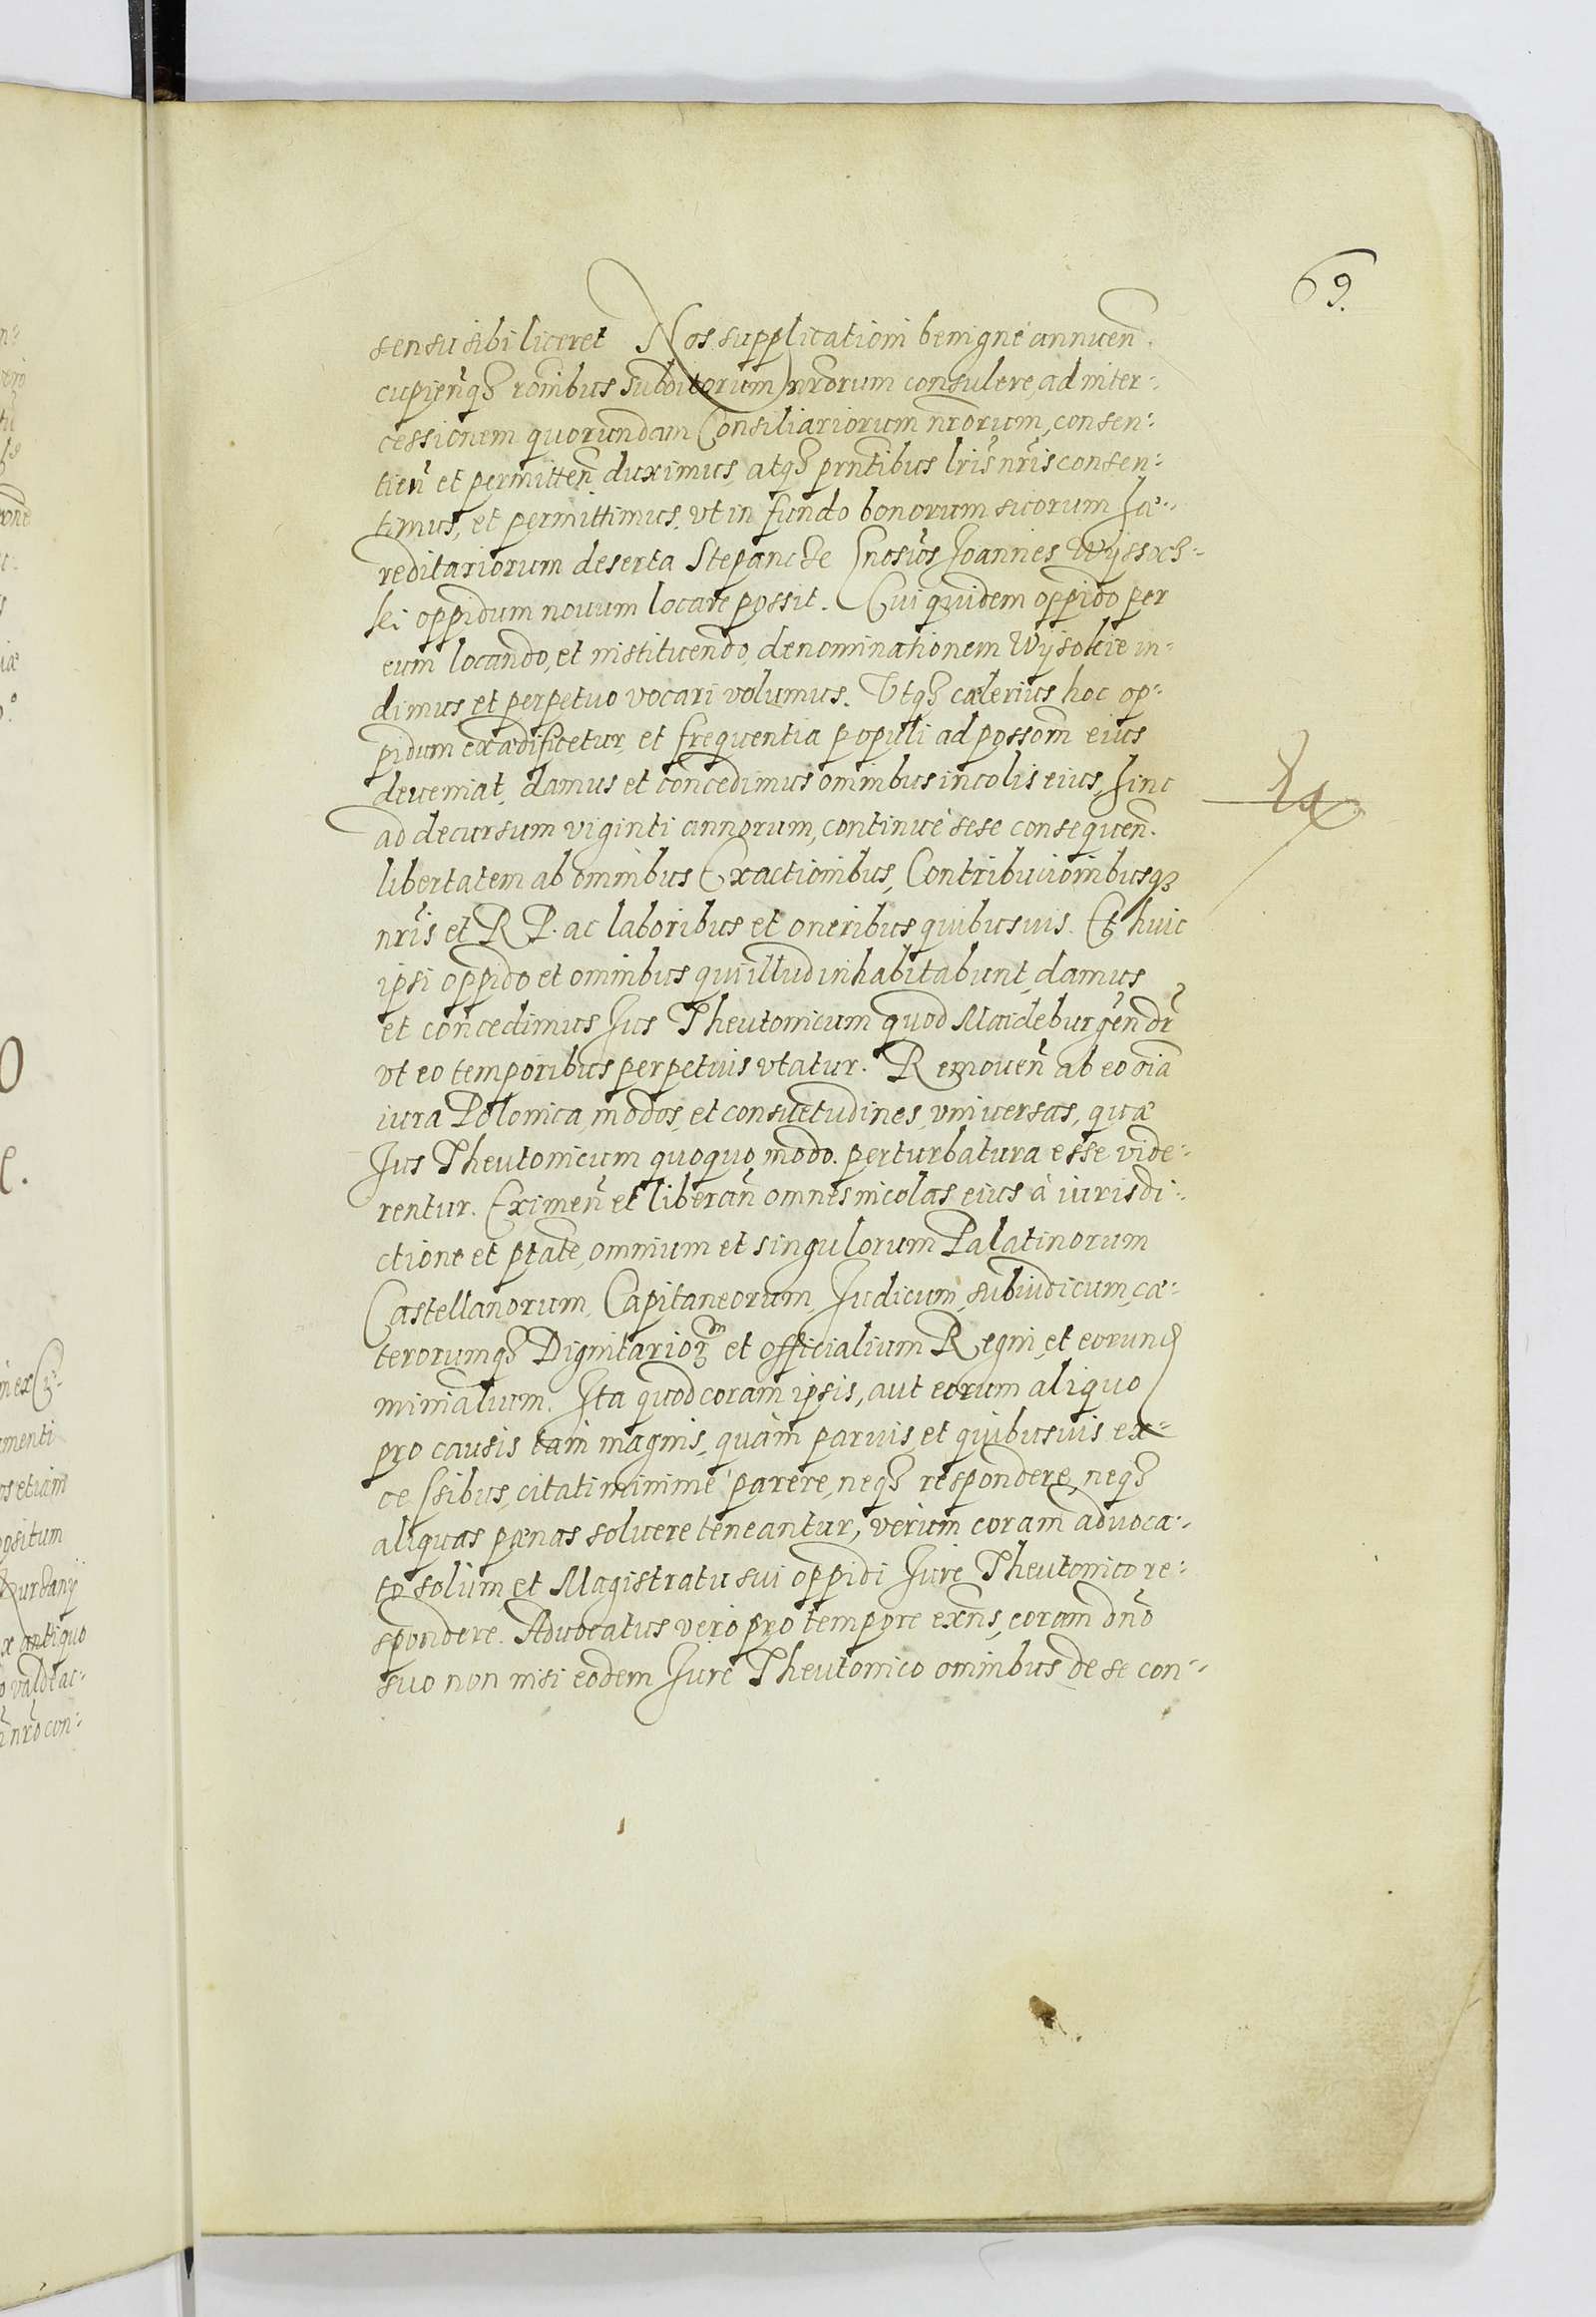 69.
sensu sibi liceret Nos supplicationi benigné annuen̄.
cupien̄qꝫ rōnibus subditorum nr̄orum consulere, ad inter-
cessionem quorundam Consiliariorum nr̄orum, consen-
tien̄ et permitten̄ duximus, atqꝫ prn̄tibus lr̄is nr̄is consen-
timus, et permittimus, vt in fundo bonorum suorum hæ-
reditariorum deserta Stepancze Gnosus Joannes Wyssocz-
ki oppidum nouum locare possit. Cui quidem oppido per
eum locando, et instituendo, denominationem Wysokie in-
dimus et perpetuo vocari volumus. Vtqꝫ cælerius hoc op-
pidum exædificetur, et frequentia populi ad possom̄ eius
deueniat, damus et concedimus omnibus incolis eius, hinc
ad decursum viginti annorum, continué sese consequen̄.
libertatem ab omnibus Exactionibus, Contribucionibusqꝫ
nr̄is et R P. ac laboribus et oneribus quibusuis. Et huic
ipsi oppido et omnibus qui illud inhabitabunt, damus
et concedimus Jus Theutonicum quod Maideburgen̄ dr̄
vt eo temporibus perpetuis vtatur. Remouen̄ ab eo oīa
iura Polonica, modos, et consuetudines, vniuersas, quæ
Jus Theutonicum quoquo modo. perturbatura esse vide-
rentur. Eximen̄ et liberan̄ omnes incolas eius à iurisdi-
ctione et ptāte, omnium et singulorum Palatinorum
Castellanorum, Capitaneorum, Judicum, subiudicum, cæ-
terorumqꝫ Dignitariorᵐ et officialium Regni, et eorund
minīalium. Ita quod coram ipsis, aut eorum aliquo
pro causis tam magnis, quàm paruis, et quibusuis ex-
cessibus, citati minimé parere, neqꝫ respondere, neqꝫ
aliquas pœnas soluere teneantur, verùm coram aduoca-
to solùm et Magistratu sui oppidi Jure Theutonico re-
spondere. Aduocatus verò pro tempore exn̄s, coram dn̄o
suo non nisi eodem Jure Theutonico omnibus de se con-